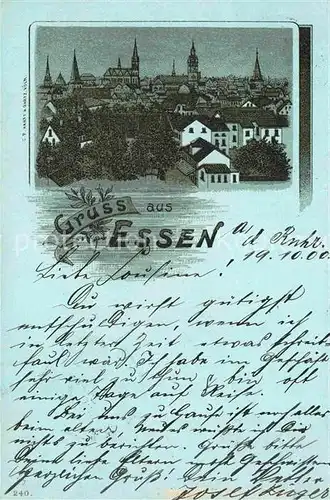 Gruss aus
ESSEN a/d Ruhr.
19.10.00.
Liebe Cousine!
Du wirst gütigst
entschuldigen, wenn ich
in letzter Zeit etwas schreib-
faul war. Ich habe im Geschäft
sehr viel zu thun & bin oft
einige Tage auf Reise.
Bei uns zu Hause ist noch alles
beim alten. Weiter weiß ich Dir
nichts zu berichten. Grüße bitte
Deine lieben Eltern und Geschwister
herzlichen Gruß! Dein
240.